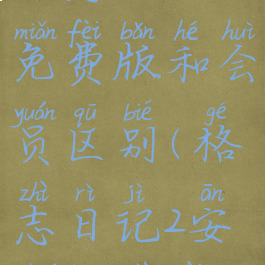 miǎn fèi bǎn hé huì
免费版和会
yuán qū bié gé
员区别(格
zhì rì jì ān
志日记2安